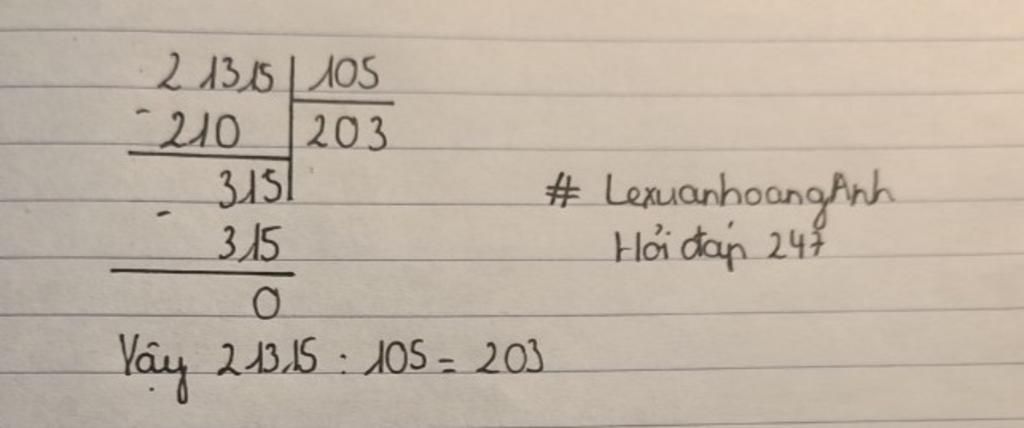 21315 105
- 210 203
315
- 315
0
Vậy 21315 : 105 = 203
# LexuanhoangAnh
Hỏi đáp 247